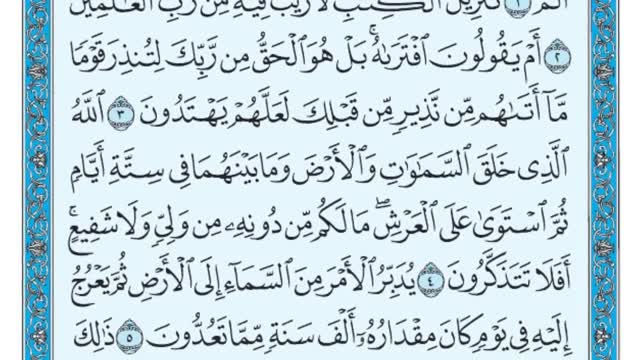 الٓمٓ ١ تَنزِيلُ ٱلْكِتَٰبِ لَا رَيْبَ فِيهِ مِن رَّبِّ ٱلْعَٰلَمِينَ
٢ أَمْ يَقُولُونَ ٱفْتَرَىٰهُۚ بَلْ هُوَ ٱلْحَقُّ مِن رَّبِّكَ لِتُنذِرَ قَوْمًا
مَّآ أَتَىٰهُم مِّن نَّذِيرٍ مِّن قَبْلِكَ لَعَلَّهُمْ يَهْتَدُونَ ٣ ٱللَّهُ
ٱلَّذِى خَلَقَ ٱلسَّمَٰوَٰتِ وَٱلْأَرْضَ وَمَا بَيْنَهُمَا فِى سِتَّةِ أَيَّامٍ
ثُمَّ ٱسْتَوَىٰ عَلَى ٱلْعَرْشِۖ مَا لَكُم مِّن دُونِهِۦ مِن وَلِىٍّ وَلَا شَفِيعٍۚ
أَفَلَا تَتَذَكَّرُونَ ٤ يُدَبِّرُ ٱلْأَمْرَ مِنَ ٱلسَّمَآءِ إِلَى ٱلْأَرْضِ ثُمَّ يَعْرُجُ
إِلَيْهِ فِى يَوْمٍ كَانَ مِقْدَارُهُۥٓ أَلْفَ سَنَةٍ مِّمَّا تَعُدُّونَ ٥ ذَٰلِكَ